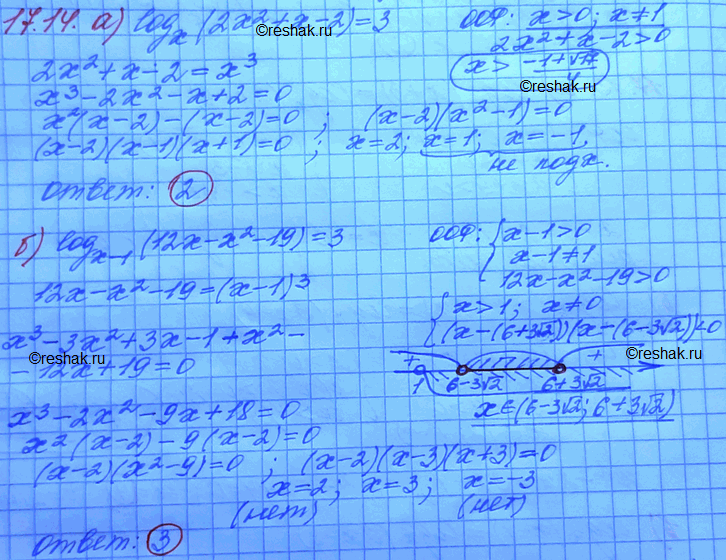 17.14. а) log_x (2x²+x-2)=3
ООФ: x>0; x≠1
2x²+x-2>0
x > (-1+√17)/4
©reshak.ru
2x²+x-2=x³
x³-2x²-x+2=0
x²(x-2)-(x-2)=0 ; (x-2)(x²-1)=0
(x-2)(x-1)(x+1)=0 ; x=2; x=1; x=-1,
не подх.
ответ: 2
б) log_{x-1} (12x-x²-19)=3
ООФ: { x-1>0
x-1≠1
12x-x²-19>0
12x-x²-19=(x-1)³
{ x>1; x≠0
(x-(6+3√2))(x-(6-3√2))<0
x³-3x²+3x-1+x²-
-12x+19=0
©reshak.ru
©reshak.ru
+ +
1 6-3√2 6+3√2
x∈(6-3√2; 6+3√2)
x³-2x²-9x+18=0
x²(x-2)-9(x-2)=0
(x-2)(x²-9)=0 ; (x-2)(x-3)(x+3)=0
x=2; x=3; x=-3
(нет) (нет)
ответ: 3